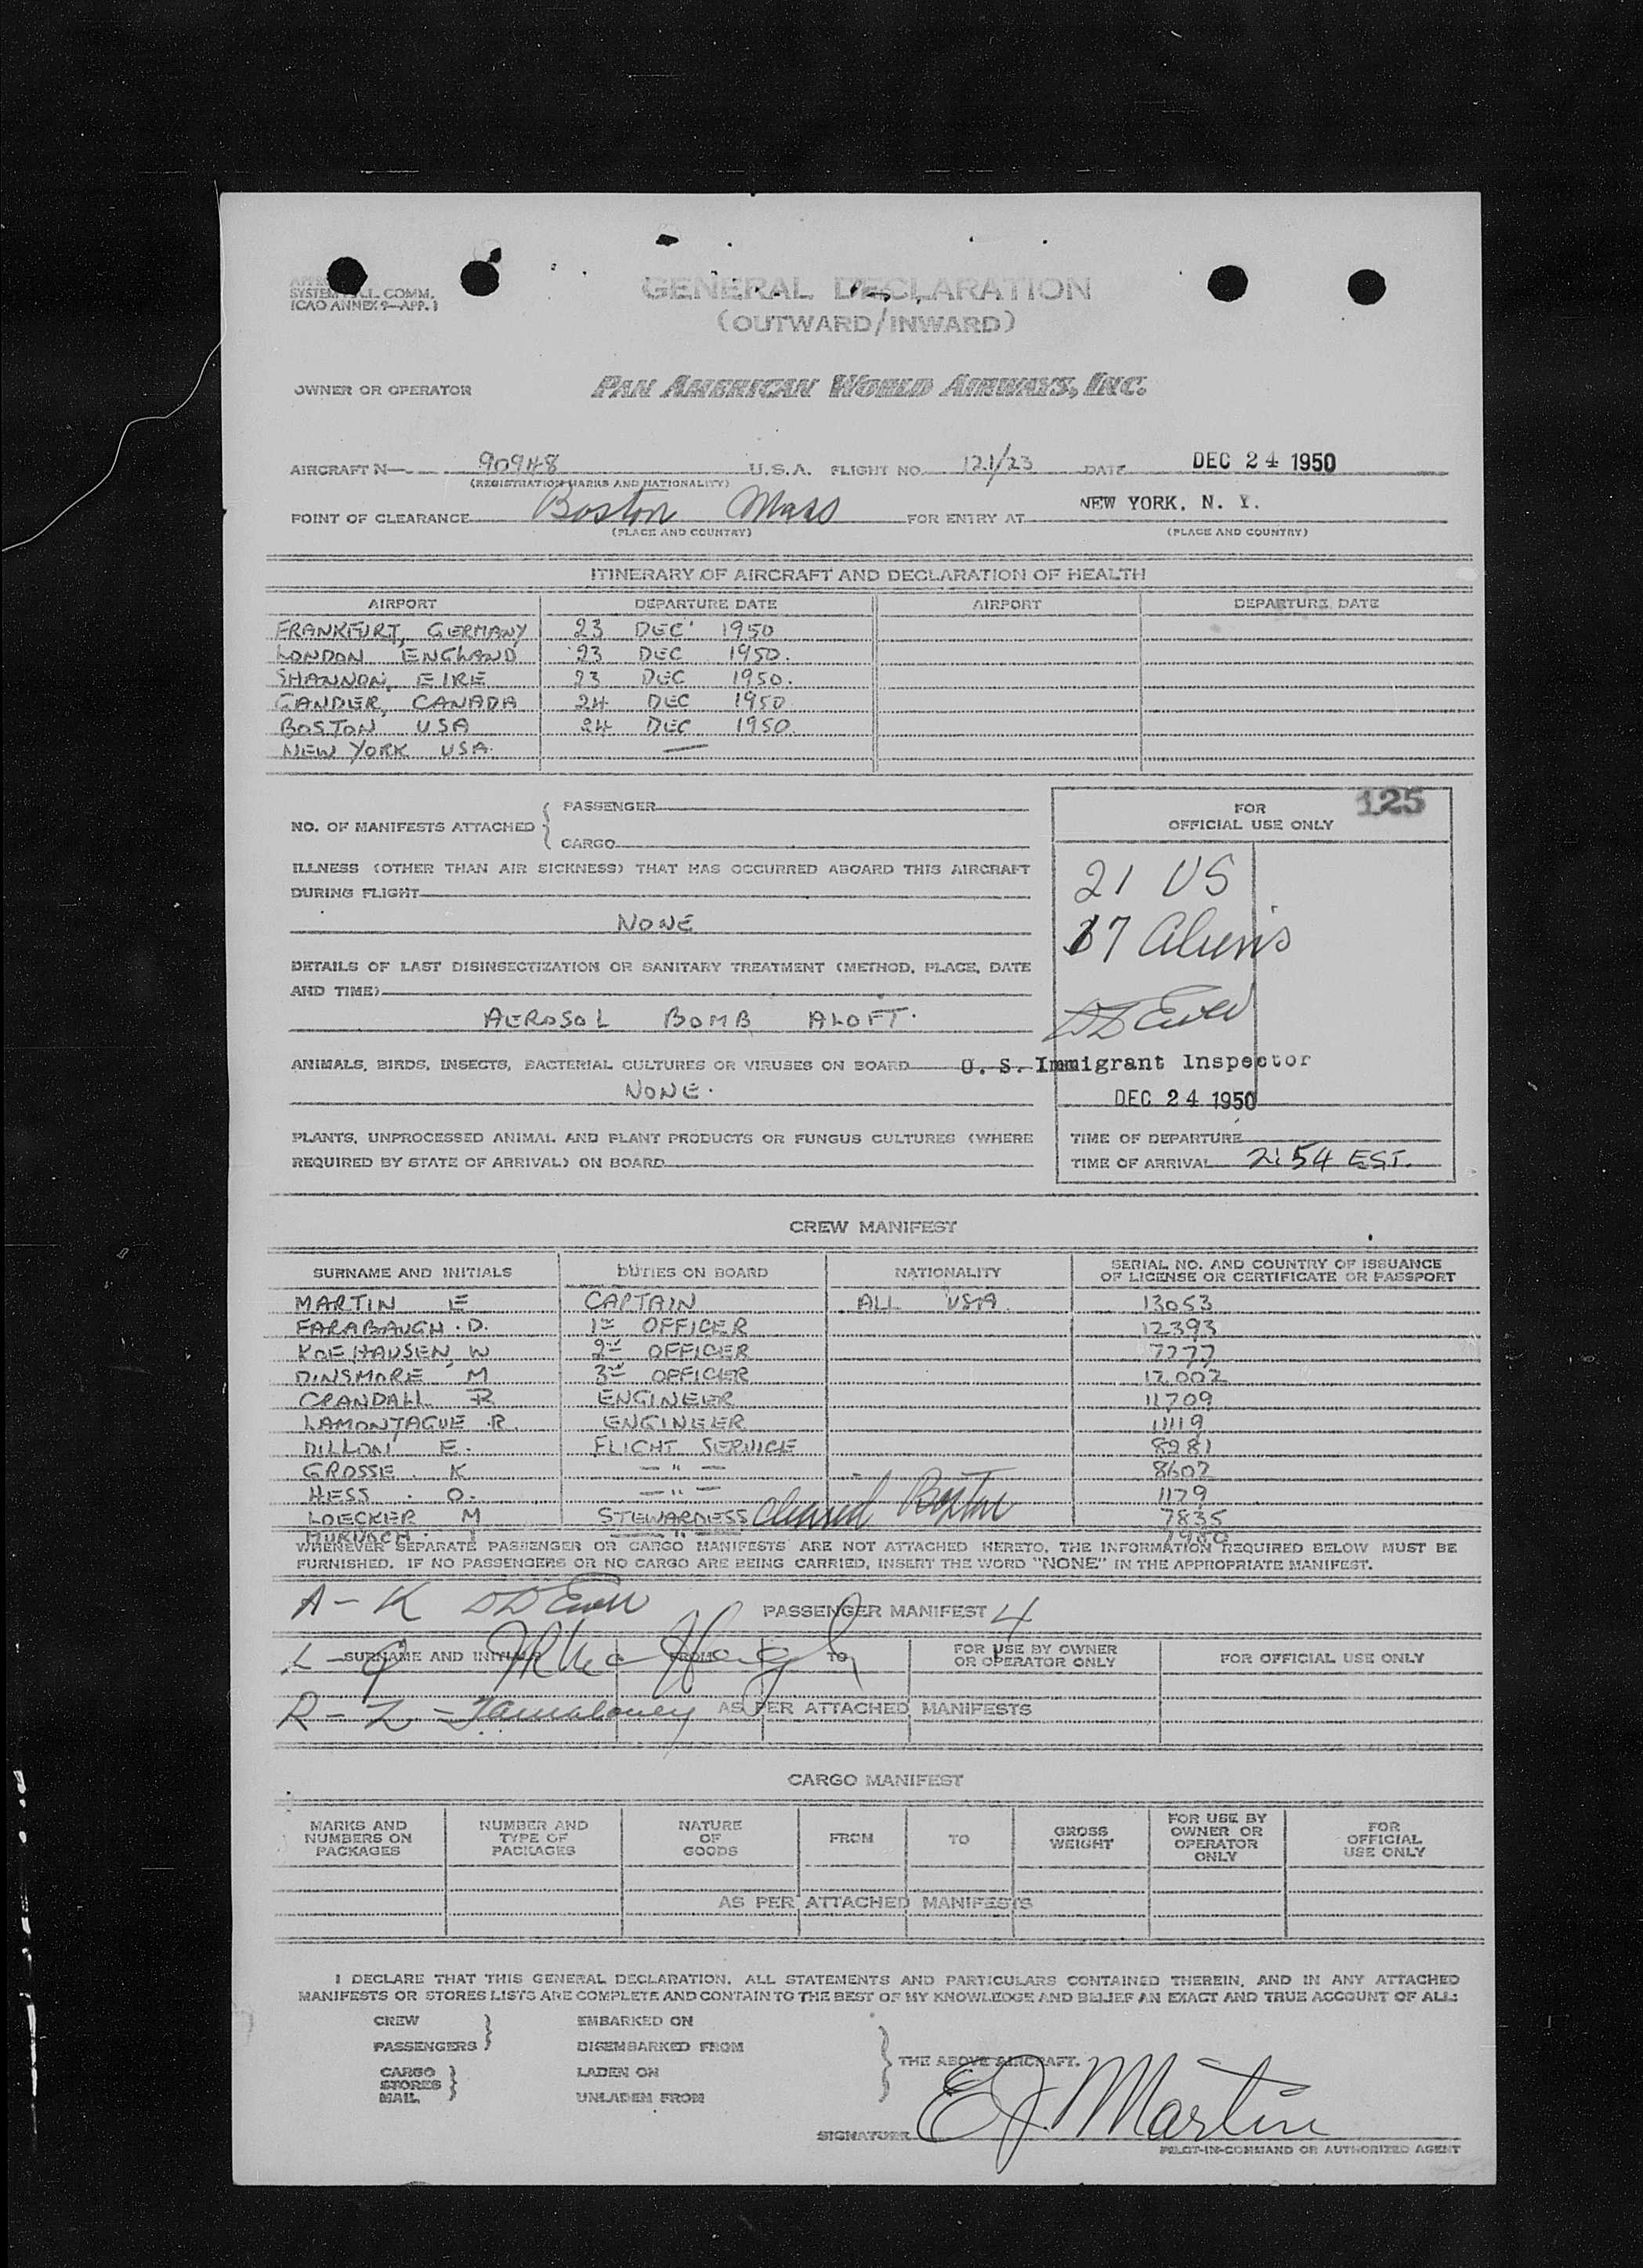 SYSTEM COMM.
(CAO ANNEX 9—APP.)
GENERAL DECLARATION
(OUTWARD/INWARD)
OWNER OR OPERATOR PAN AMERICAN WORLD AIRWAYS, INC.
AIRCRAFT N— 90948 U.S.A. FLIGHT NO. 121/23 DATE DEC 24 1950
(REGISTRATION MARKS AND NATIONALITY)
POINT OF CLEARANCE Boston Mass FOR ENTRY AT NEW YORK, N. Y.
(PLACE AND COUNTRY) (PLACE AND COUNTRY)
ITINERARY OF AIRCRAFT AND DECLARATION OF HEALTH
AIRPORT DEPARTURE DATE AIRPORT DEPARTURE DATE
FRANKFURT, GERMANY 23 DEC 1950
LONDON ENGLAND 23 DEC 1950.
SHANNON, EIRE 23 DEC 1950.
GANDER, CANADA 24 DEC 1950
BOSTON USA 24 DEC 1950.
NEW YORK USA. —
NO. OF MANIFESTS ATTACHED { PASSENGER
CARGO
ILLNESS (OTHER THAN AIR SICKNESS) THAT HAS OCCURRED ABOARD THIS AIRCRAFT
DURING FLIGHT
NONE
DETAILS OF LAST DISINSECTIZATION OR SANITARY TREATMENT (METHOD, PLACE, DATE
AND TIME)
AEROSOL BOMB ALOFT.
ANIMALS, BIRDS, INSECTS, BACTERIAL CULTURES OR VIRUSES ON BOARD
NONE.
PLANTS, UNPROCESSED ANIMAL AND PLANT PRODUCTS OR FUNGUS CULTURES (WHERE
REQUIRED BY STATE OF ARRIVAL) ON BOARD
FOR 125
OFFICIAL USE ONLY
21 US
17 Aliens
U. S. Immigrant Inspector
DEC 24 1950
TIME OF DEPARTURE
TIME OF ARRIVAL 2:54 EST.
CREW MANIFEST
SURNAME AND INITIALS DUTIES ON BOARD NATIONALITY SERIAL NO. AND COUNTRY OF ISSUANCE
OF LICENSE OR CERTIFICATE OR PASSPORT
MARTIN E CAPTAIN ALL USA. 13053
FARABAUGH. D. 1st OFFICER 12393
KOEHAUSEN, W 2nd OFFICER 7277
DINSMORE M 3rd OFFICER 12002
CRANDALL R ENGINEER 11709
LAMONTAGUE R. ENGINEER 11119
DILLON E. FLIGHT SERVICE 8281
GROSSE. K — " — 8602
HESS. O. — " — 1129
LOECKER M STEWARDESS cleared Boston 7835
— " —
WHENEVER SEPARATE PASSENGER OR CARGO MANIFESTS ARE NOT ATTACHED HERETO, THE INFORMATION REQUIRED BELOW MUST BE
FURNISHED. IF NO PASSENGERS OR NO CARGO ARE BEING CARRIED, INSERT THE WORD "NONE" IN THE APPROPRIATE MANIFEST.
A – K
PASSENGER MANIFEST 4
L – Q
SURNAME AND INITIALS FROM TO FOR USE BY OWNER
OR OPERATOR ONLY FOR OFFICIAL USE ONLY
R – Z –
AS PER ATTACHED MANIFESTS
CARGO MANIFEST
MARKS AND
NUMBERS ON
PACKAGES
NUMBER AND
TYPE OF
PACKAGES
NATURE
OF
GOODS
FROM
TO
GROSS
WEIGHT
FOR USE BY
OWNER OR
OPERATOR
ONLY
FOR
OFFICIAL
USE ONLY
AS PER ATTACHED MANIFESTS
I DECLARE THAT THIS GENERAL DECLARATION, ALL STATEMENTS AND PARTICULARS CONTAINED THEREIN, AND IN ANY ATTACHED
MANIFESTS OR STORES LISTS ARE COMPLETE AND CONTAIN TO THE BEST OF MY KNOWLEDGE AND BELIEF AN EXACT AND TRUE ACCOUNT OF ALL:
CREW EMBARKED ON
PASSENGERS DISEMBARKED FROM
THE ABOVE AIRCRAFT.
CARGO LADEN ON
STORES
MAIL UNLADEN FROM
SIGNATURE EJ Martin
PILOT-IN-COMMAND OR AUTHORIZED AGENT